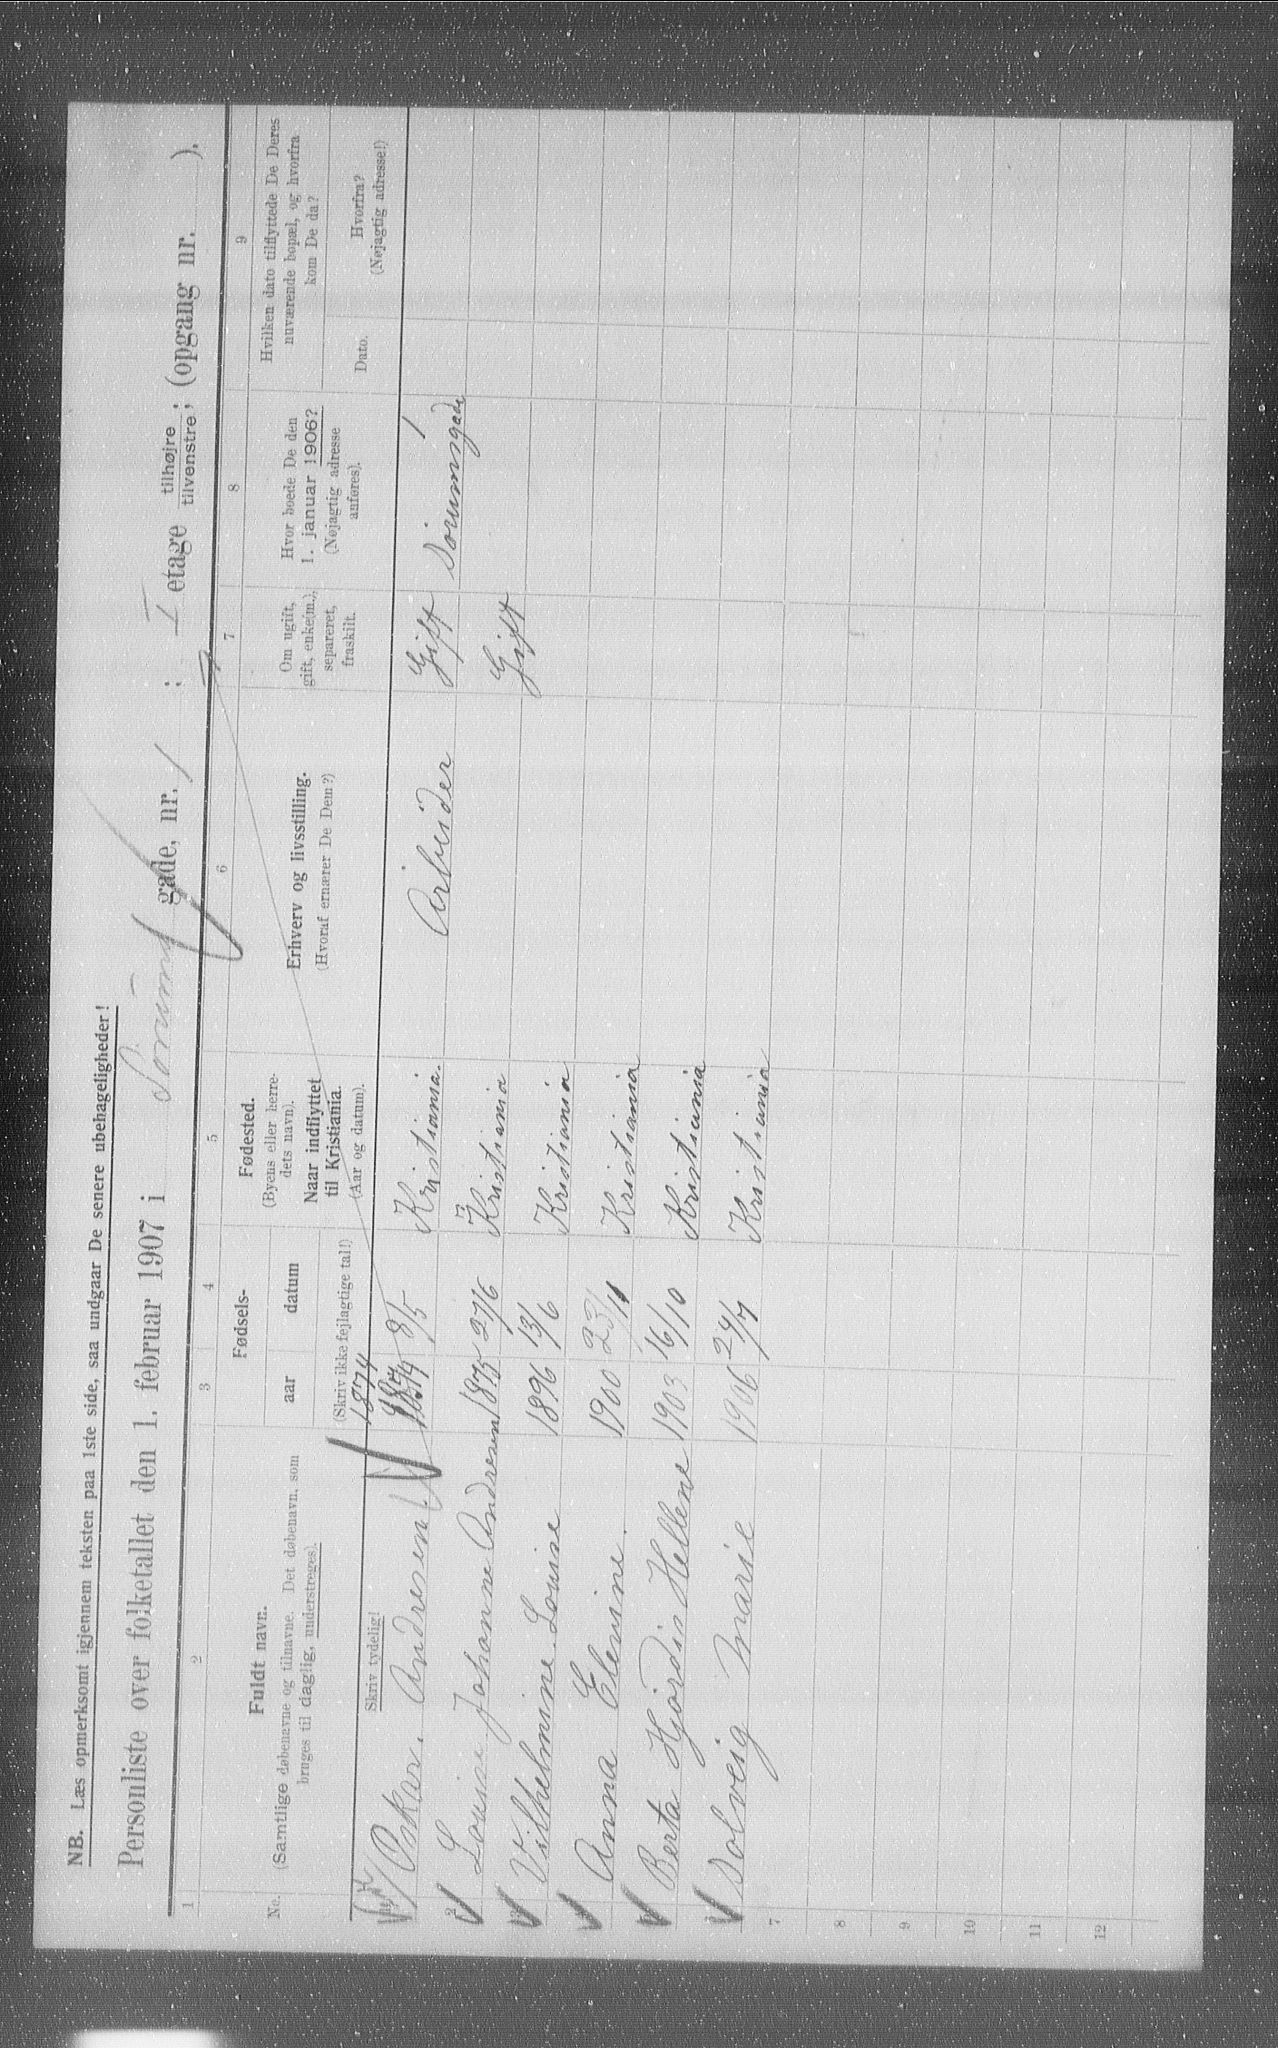 NB. Læs opmerksomt igjennem teksten paa 1ste side, saa undgaar De senere ubehageligheder!
Personliste over folketallet den 1. februar 1907 i Sörums gade, nr. 1 ; I etage tilhøjre tilvenstre; (opgang nr. ).
1 2 3 4 5 6 7 8 9
No.
Fuldt navn.
(Samtlige døbenavne og tilnavne. Det døbenavn, som
bruges til daglig, understreges).
Fødsels-
aar datum
Fødested.
(Byens eller herre-
dets navn).
Naar indflyttet
til Kristiania.
(Aar og datum).
Erhverv og livsstilling.
(Hvoraf ernærer De Dem?)
Om ugift,
gift, enke(m.),
separeret,
fraskilt.
Hvor boede De den
1. januar 1906?
(Nøjagtig adresse
anføres).
Hvilken dato tilflyttede De Deres
nuværende bopæl, og hvorfra
kom De da?
Dato.
Hvorfra?
(Nøjagtig adresse!)
Skriv tydelig!
(Skriv ikke fejlagtige tal!)
1874
Oskar. Andresen. 1874 8/5 Kristiania. Arbeider Gift Sörumsgade 1
2 Louise Johanne Andresen 1875 27/6 Kristiania Gift
3 Vilhelmine Louise 1896 13/6 Kristiania
Anna Elenine. 1900 23/11 Kristiania
Berta Hjördis Hellene 1903 16/10 Kristiania
Solveig Marie 1906 24/7 Kristiania
7
8
9
10
11
12